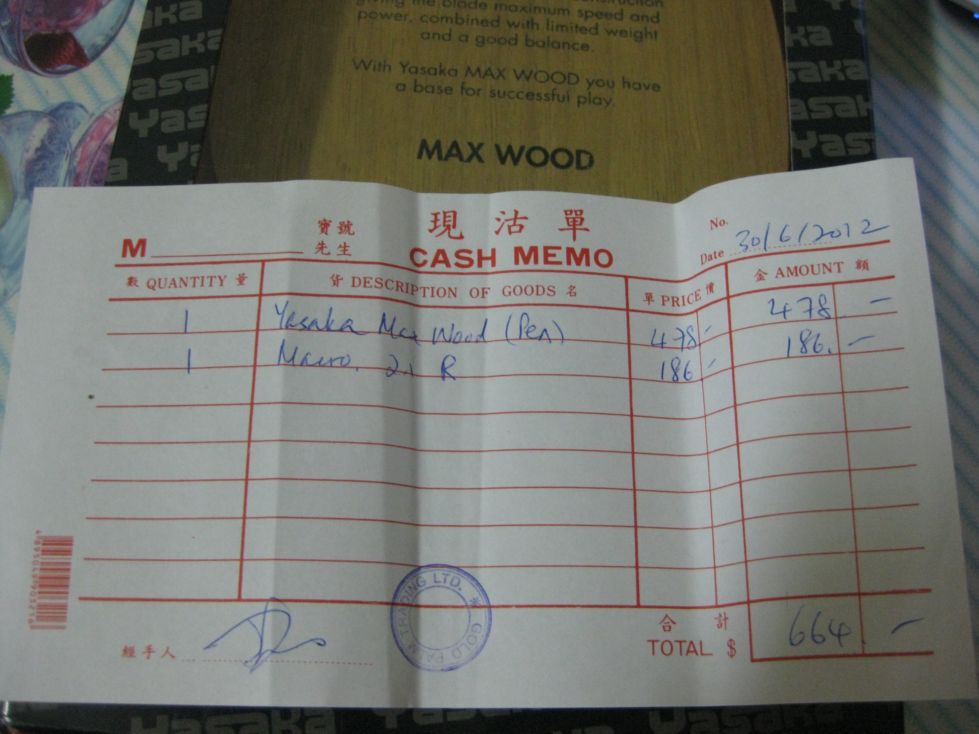 giving the blade maximum speed and
power, combined with limited weight
and a good balance.
With Yasaka MAX WOOD you have
a base for successful play.
MAX WOOD
Yasaka
Yasaka
現沽單
CASH MEMO
M 寶號
先生
No.
Date 30/6/2012
數 QUANTITY 量 貨 DESCRIPTION OF GOODS 名 單 PRICE 價 金 AMOUNT 額
1 Yasaka Max Wood (Pen) 478 - 478 -
1 Macro. 2.1 R 186 - 186. -
經手人
GOLD PALM TRADING LTD.
合計
TOTAL $ 664. -
Yasaka